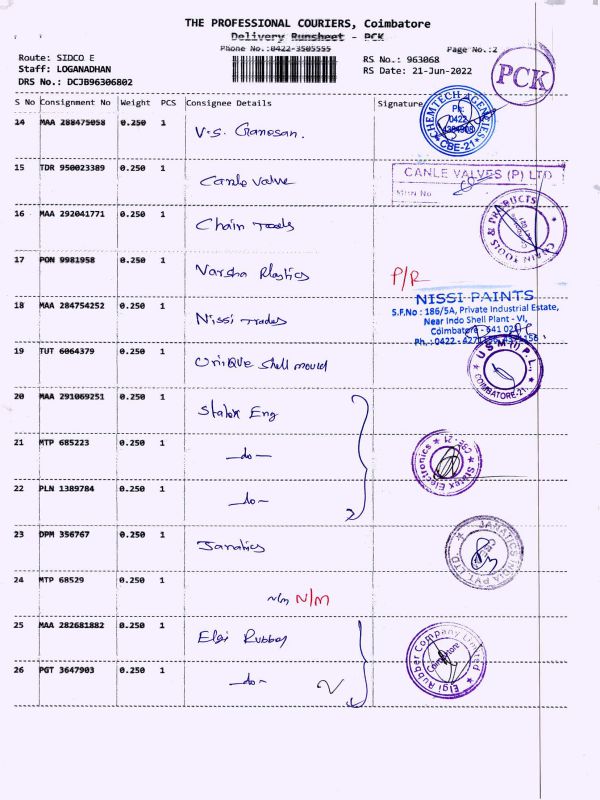 THE PROFESSIONAL COURIERS, Coimbatore
Delivery Runsheet - PCK
Phone No.:0422-3505555
Page No.:2
Route: SIDCO E
Staff: LOGANADHAN
DRS No.: DCJB96306802
RS No.: 963068
RS Date: 21-Jun-2022
PCK
S No Consignment No Weight PCS Consignee Details Signature
14 MAA 288475058 0.250 1 V.S. Ganesan.
CHEMTECH AGENCIES
Ph:
0422
CBE-21
15 TDR 950023389 0.250 1 Canle valve
CANLE VALVES (P) LTD
16 MAA 292041771 0.250 1 Chain Tools
CHAIN TOOLS & PRODUCTS
17 PON 9981958 0.250 1 Varsha Plastics P/R
18 MAA 284754252 0.250 1 Nissi Trades
NISSI PAINTS
S.F.No : 186/5A, Private Industrial Estate,
Near Indo Shell Plant - VI,
Coimbatore - 641 021
Ph. : 0422 -
19 TUT 6064379 0.250 1 Unique Shell mould
U S M (I) P. L.,
COIMBATORE-21.
20 MAA 291069251 0.250 1 Statex Eng
21 MTP 685223 0.250 1 -do-
Statex Electronics CBE-21
22 PLN 1389784 0.250 1 -do-
23 DPM 356767 0.250 1 Janatics
JANATICS INDIA PVT. LTD.
24 MTP 68529 0.250 1 N/m N/M
25 MAA 282681882 0.250 1 Elgi Rubber
Elgi Rubber Company Limited
Coimbatore
26 PGT 3647903 0.250 1 -do-